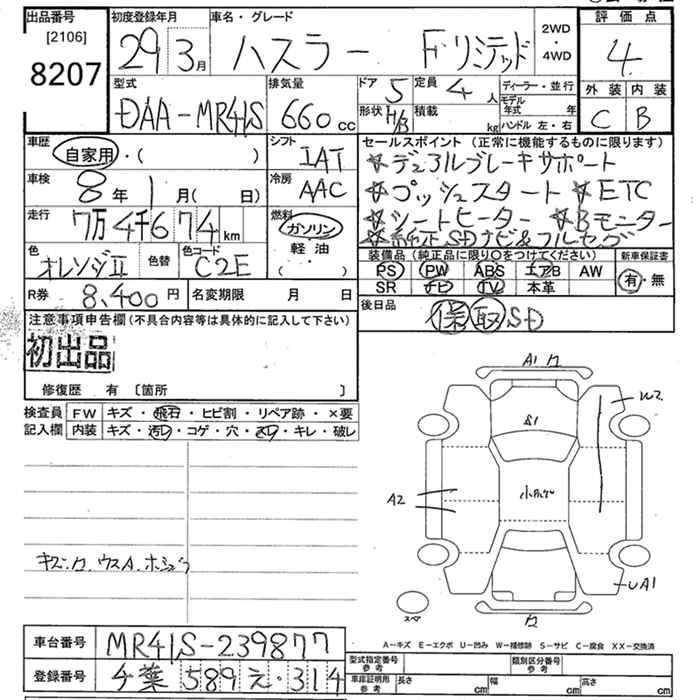 出品番号 初度登録年月 車名・グレード 評価点
[2106] 29 3月 ハスラー Fリミテッド 2WD・4WD 4
8207
型式 排気量 ドア 5 定員 4人 ディーラー・並行 外装 内装
DAA-MR41S 660cc 形状 H/B 積載 kg モデル年式 年 C B
ハンドル 左・右
車歴 自家用・( ) シフト セールスポイント (正常に機能するものに限ります)
IAT ☆デュアルブレーキサポート
車検 8年 1月( 日) 冷房 ☆プッシュスタート ☆ETC
AAC ☆シートヒーター ☆Bモニター
走行 7万4千674km 燃料 ガソリン ☆純正SDナビ&フルセグ
軽油
( )
色 オレンジII 色替 色コード C2E 装備品 (純正品に限り○をつけてください) 新車保証書
PS PW ABS エアB AW 有・無
SR ナビ TV 本革
R券 8,400円 名変期限 月 日 後日品
保 取 SD
注意事項申告欄(不具合内容等は具体的に記入して下さい)
初出品
修復歴 有 〔箇所 〕
検査員 FW キズ・飛石・ヒビ割・リペア跡・×要
記入欄 内装 キズ・汚レ・コゲ・穴・スレ・キレ・破レ
A1
W2
A2
UA1
スペア
A-キズ E-エクボ U-凹み W-補修跡 S-サビ C-腐食 XX-交換済
車台番号 MR41S-239877 型式指定番号 参考 類別区分番号 参考
登録番号 千葉 589 え・314 車庫証明用 参考 長さ cm 幅 cm 高さ cm